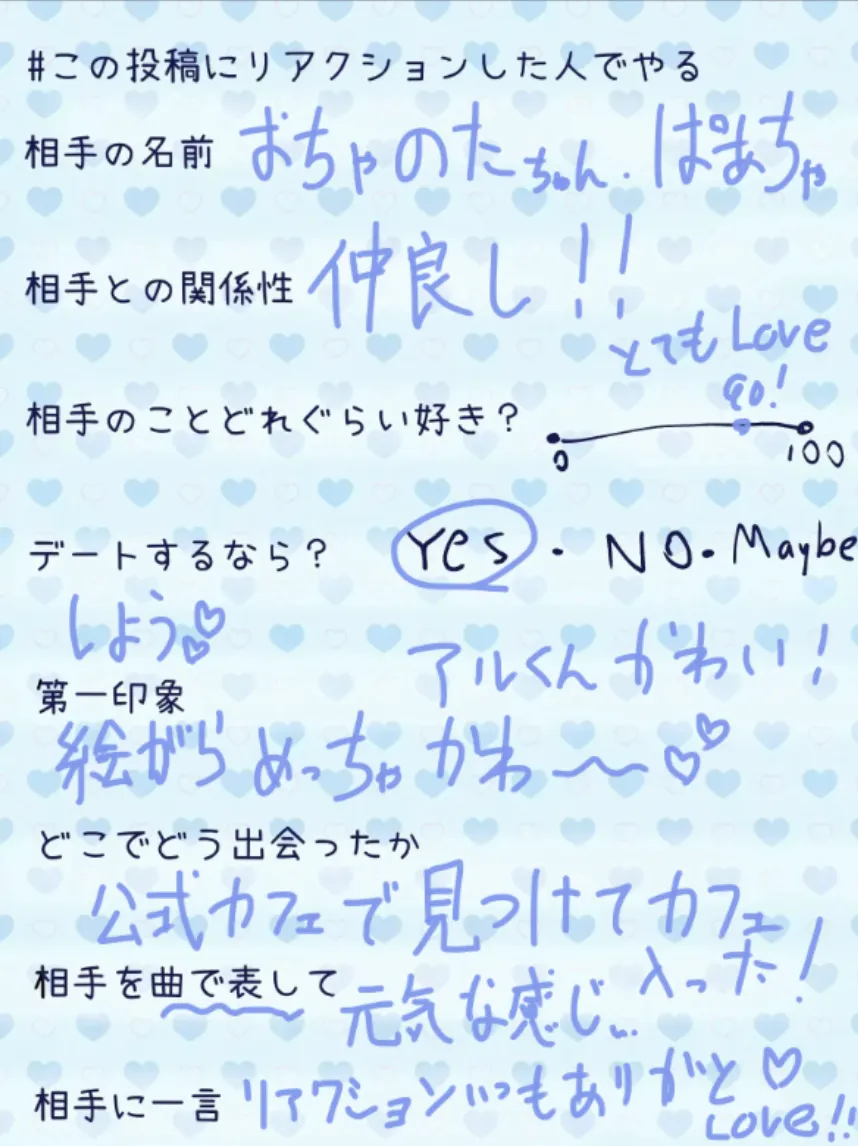 #この投稿にリアクションした人でやる
相手の名前 おちゃのたちゃん.ぱあちゃ
相手との関係性 仲良し!!
とてもLove
相手のことどれぐらい好き? 90!
0 100
デートするなら? Yes・NO・Maybe
しよう♡♡
アルくんかわい!
第一印象
絵がらめっちゃかわ〜〜♡♡
どこでどう出会ったか
公式カフェで見つけてカフェ
入った!
相手を曲で表して 元気な感じ...
相手に一言 リアクションいつもありがと♡
LOVE!!